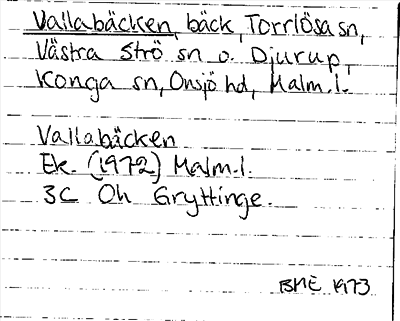 Vallabäcken, bäck, Torrlösa sn,
Västra Strö sn o. Djurup,
Konga sn, Onsjö hd, Malm.l.
Vallabäcken
Ek. (1972) Malm.l.
3C Oh Gryttinge.
BME 1973